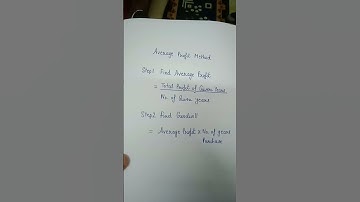 Average Profit Method
Step1 Find Average Profit
= Total Profit of Given Years
No. of Given years
Step2 Find Goodwill
= Average Profit × No. of years
Purchase